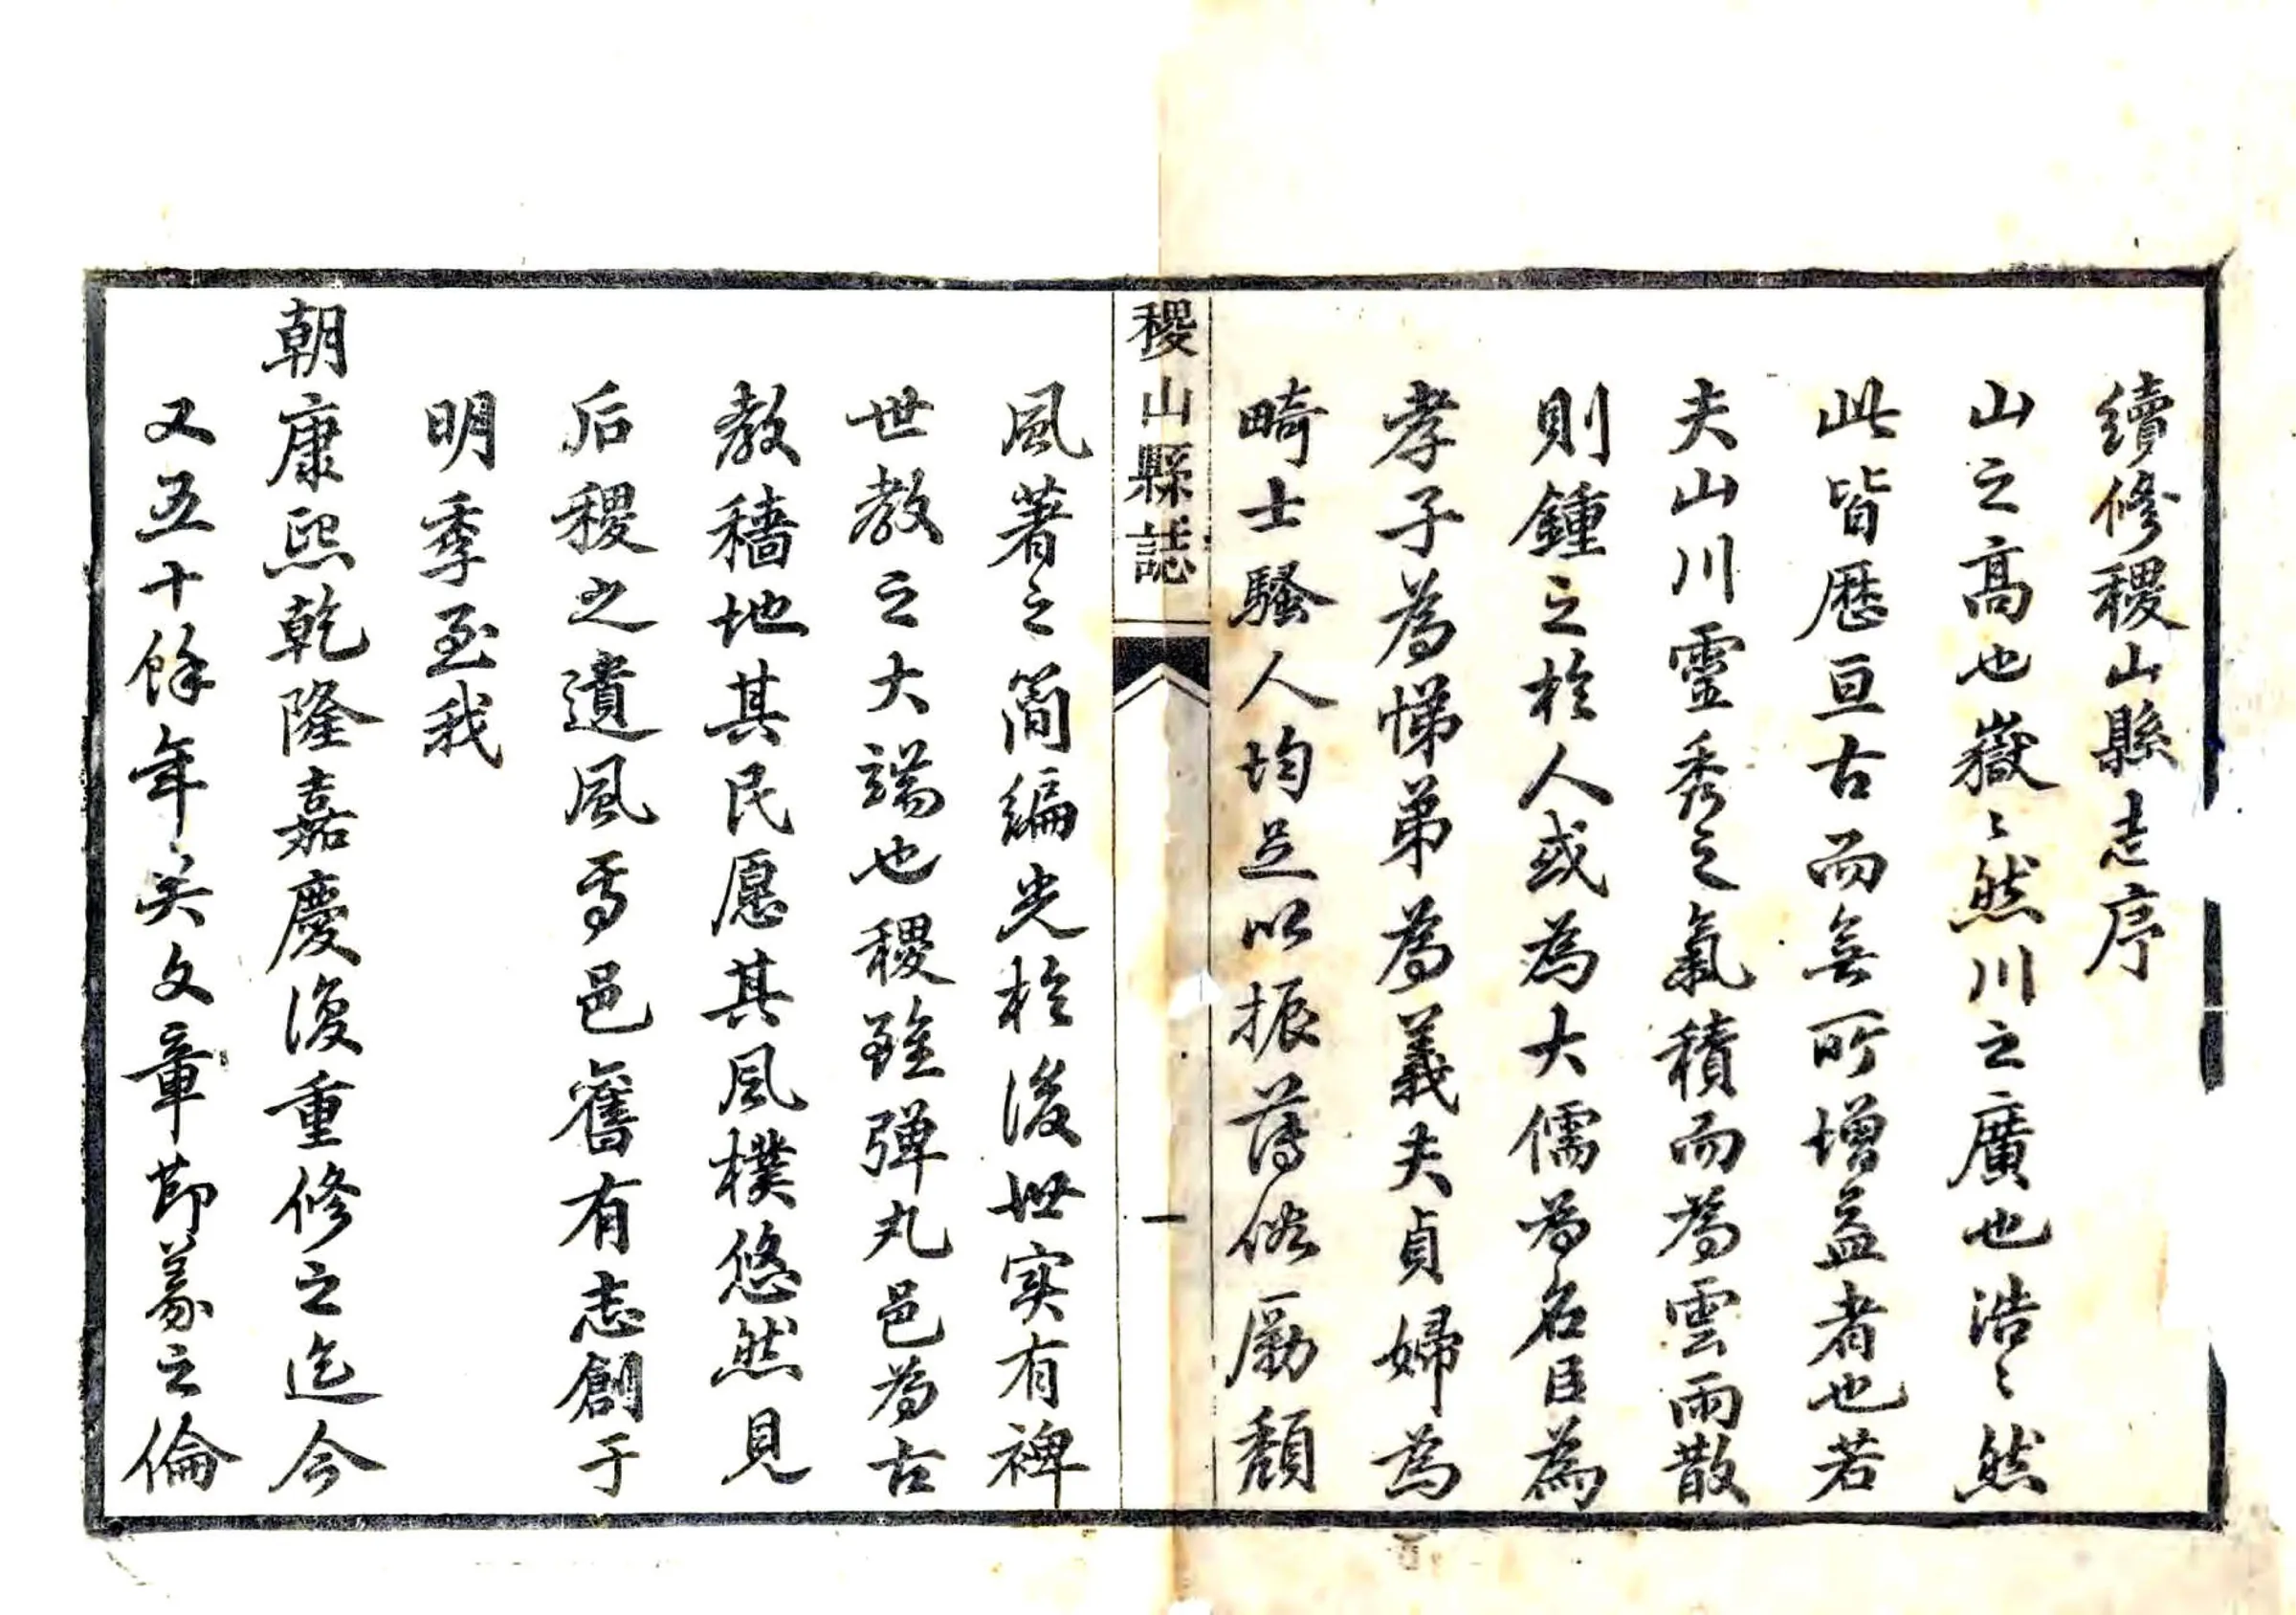 續修稷山縣志序
山之高也嶽〻然川之廣也浩〻然
此皆歷亘古而無所增益者也若
夫山川靈秀之氣積而為雲雨散
則鍾之於人或為大儒為名臣為
孝子為悌弟為義夫貞婦為
畸士騷人均足以振薄俗勵頹
稷山縣誌
一
風著之簡編光於後世实有裨
世教之大端也稷雖彈丸邑為古
教穡地其民愿其風樸悠然見
后稷之遺風焉邑舊有志創于
明季至我
朝康熙乾隆嘉慶復重修之迄今
又五十餘年矣文章節義之倫